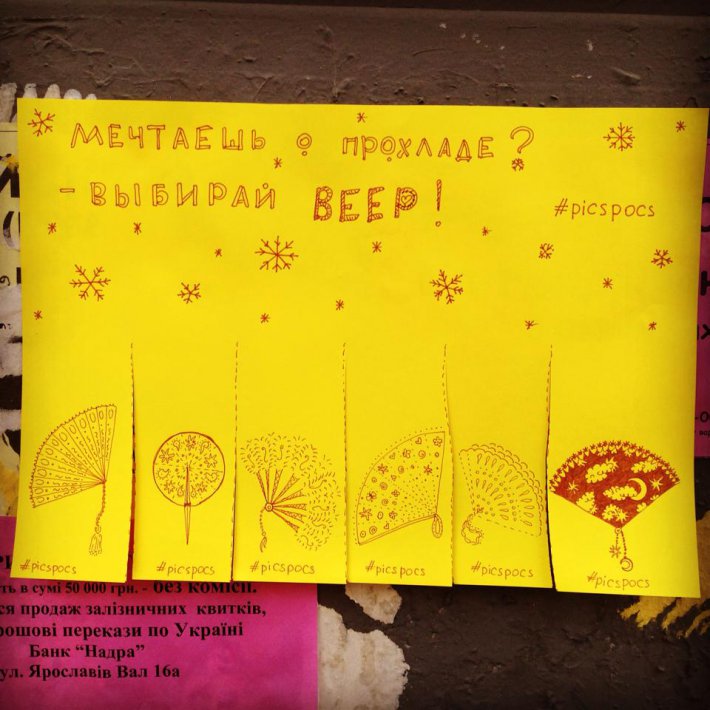 МЕЧТАЕШЬ О ПРОХЛАДЕ?
- ВЫБИРАЙ ВЕЕР!
#picspocs
#picspocs
#picspocs
#picspocs
#picspocs
#picspocs
#picspocs
в сумі 50 000 грн. - без комісії.
ся продаж залізничних квитків,
рошові перекази по Україні
Банк "Надра"
ул. Ярославів Вал 16а